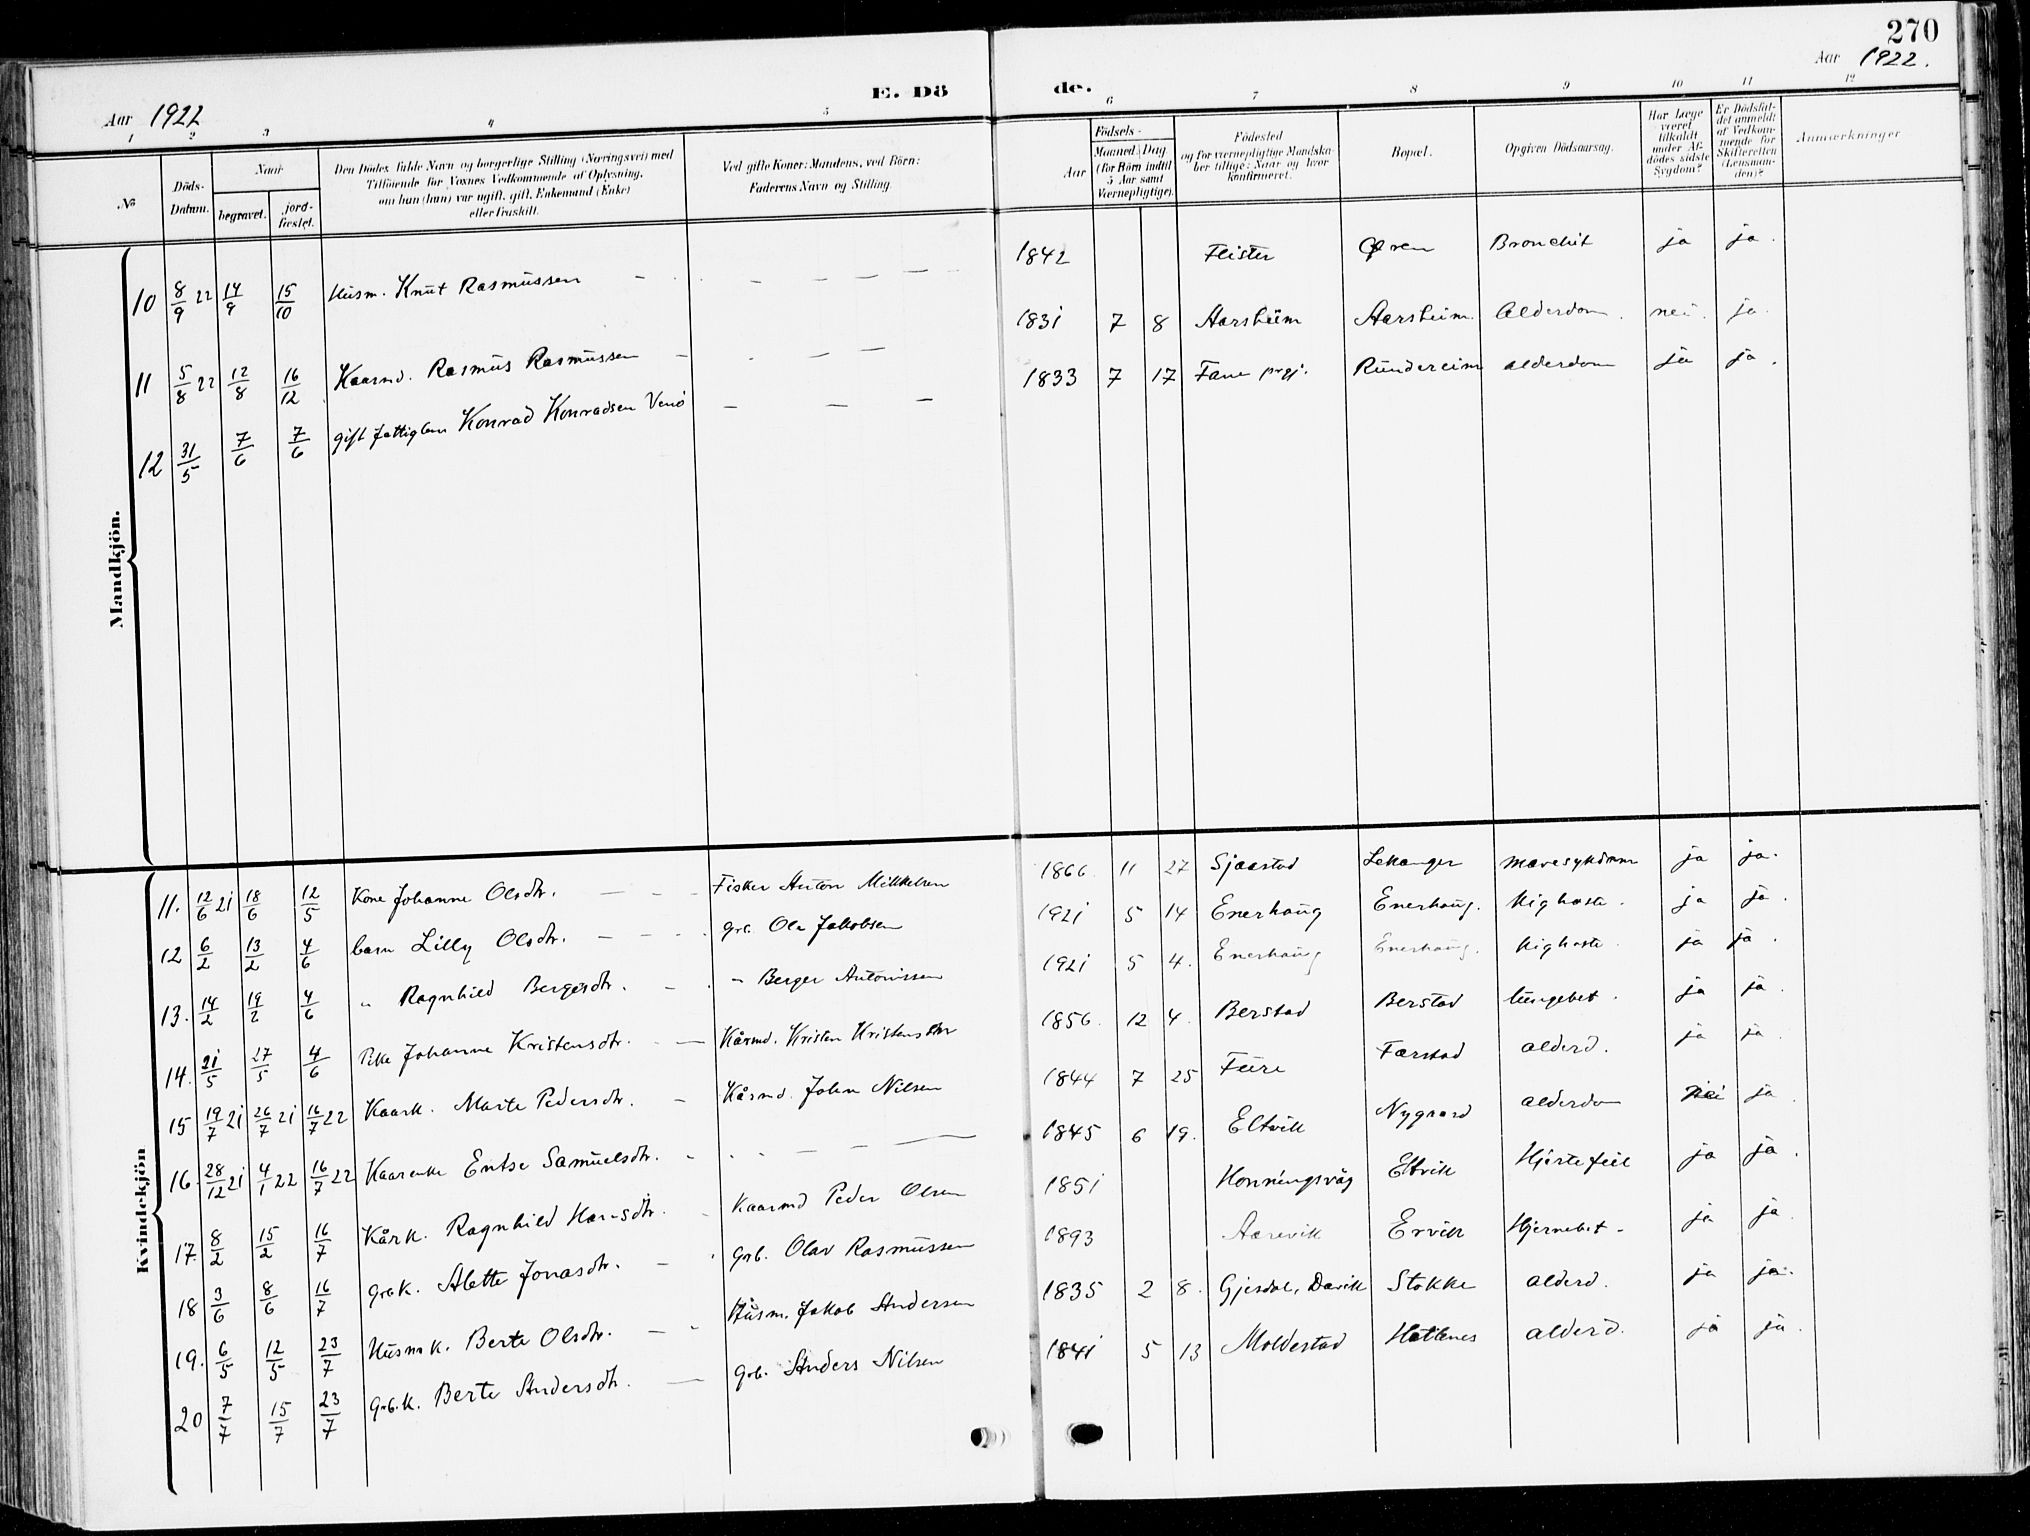 270
Aar 1922.
Aar 1922
E. Dö de.
1 2 3 4 5 6 7 8 9 10 11 12
No
Döds-Datum.
Naar
begravet.
jord-fæstet.
Den Dödes fulde Navn og borgerlige Stilling (Næringsvei) med
Tilföiende for Voxnes Vedkommende af Oplysning,
om hun (han) var ugift, gift, Enkemand (Enke)
eller fraskilt.
Ved gifte Koner: Mandens, ved Börn:
Faderens Navn og Stilling.
Födsels-
Aar
Maaned. Dag
(for Börn indtil
5 Aar samt
Værnepligtige).
Födested
og for værnepligtige Mandska-
ber tillige: Naar og hvor
konfirmeret.
Bopæl.
Opgiven Dödsaarsag.
Har Læge
været
tilkaldt
under Af-
dödes sidste
Sygdom?
Er Dödsfal-
det anmeldt
af Vedkom-
mende for
Skifteretten
(Lensman-
den)?
Anmærkninger
Mandkjön.
10 8/9 22 14/9 15/10 Husm. Knut Rasmussen — — — — — 1842 Fleister Øren Bronchit ja ja.
11 5/8 22 12/8 16/12 Kaarmd. Rasmus Rasmussen — — — 1831 7 8 Aarsheim Aarsheim Alderdom. nei. ja.
12 31/5 7/6 7/6 gift fattiglem Konrad Konradsen — — — 1833 7 17 prgj. Rundereim alderdom ja ja.
Kvindekjön
11. 12/6 21 18/6 12/5 Kone Johanne Olsdtr. — — — Fisker Anton Mikkelsen 1866 11 27 Sjaastad Lekanger mavesykdom ja ja.
12 6/2 13/2 4/6 barn Lilly Olsdtr. — — grb. Ola Jakobsen 1921 5 14 Enerhaug Enerhaug. Kighoste. ja ja.
13. 14/2 19/2 4/6 " Ragnhild Bergesdtr. — " Berger Antonissen 1921 5 4. Enerhaug Enerhaug. Kighoste. ja ja.
14. 21/5 27/5 4/6 Pike Johanne Kristensdtr. — Kårmd. Kristen Kristensen 1856. 12 4. Berstad Berstad lungebet. ja ja.
15 19/7 21 26/7 21 16/7 22 Kaark. Marte Pedersdtr. — Kårmd. John Nilsen 1844 7 25 Fure Færstad alderd. ja ja.
16. 28/12 21 4/1 22 16/7 22 Kaarenke Samuelsdtr. — — — 1845 6 19. Eltvik Nygaard alderdom nei ja.
17. 8/2 15/2 16/7 Kårk. Ragnhild Hansdtr. Kaarmd Peder Olsen 1851 Honningsvåg Eltvik Hjertefeil ja ja.
18 3/6 8/6 16/7 grbk. Alette Jonasdtr. — grb. Olav Rasmussen 1893 Aarevik Ervik Hjernebet. ja ja.
19. 6/5 12/5 23/7 Husmk. Berte Olsdtr. — Husm. Jakob Andersen 1835 2 8. Gjesdal, Davik Stokke alderd. ja ja.
20 7/7 15/7 23/7 grb.k. Berte Andersdtr. — grb. Anders Nilsen 1841 5 13 Moldestad Hatlenes alderd. ja ja.